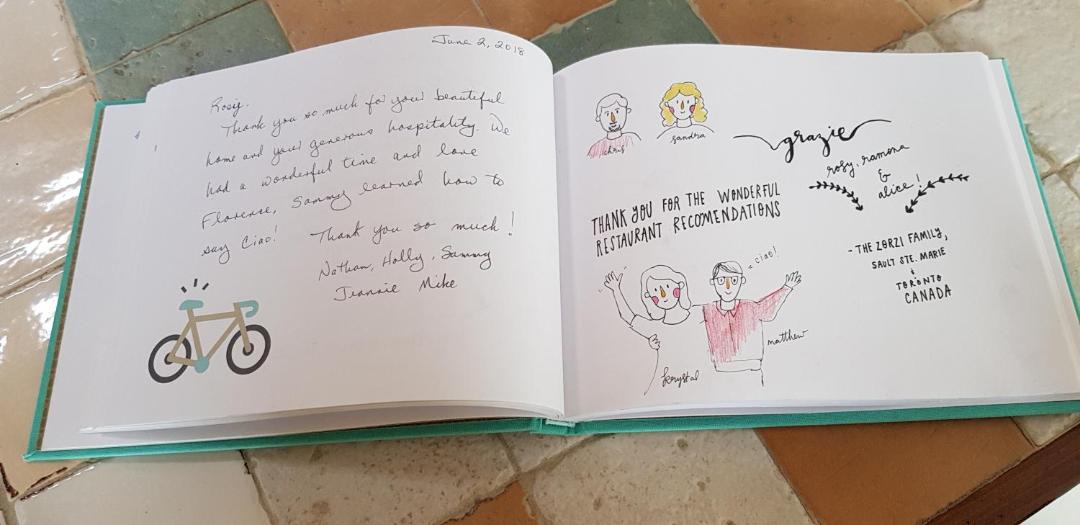 June 2, 2018
Rosy.
Thank you so much for your beautiful
home and your generous hospitality. We
had a wonderful time and love
Florence, Sammy learned how to
say Ciao!
Thank you so much!
Nathan, Holly, Sammy
Jeannie Mike
chris
sandra
grazie
rosy, ramona
&
alice!
THANK YOU FOR THE WONDERFUL
RESTAURANT RECOMENDATIONS
ciao!
matthew
krystal
- THE ZORZI FAMILY,
SAULT STE. MARIE
+
TORONTO
CANADA